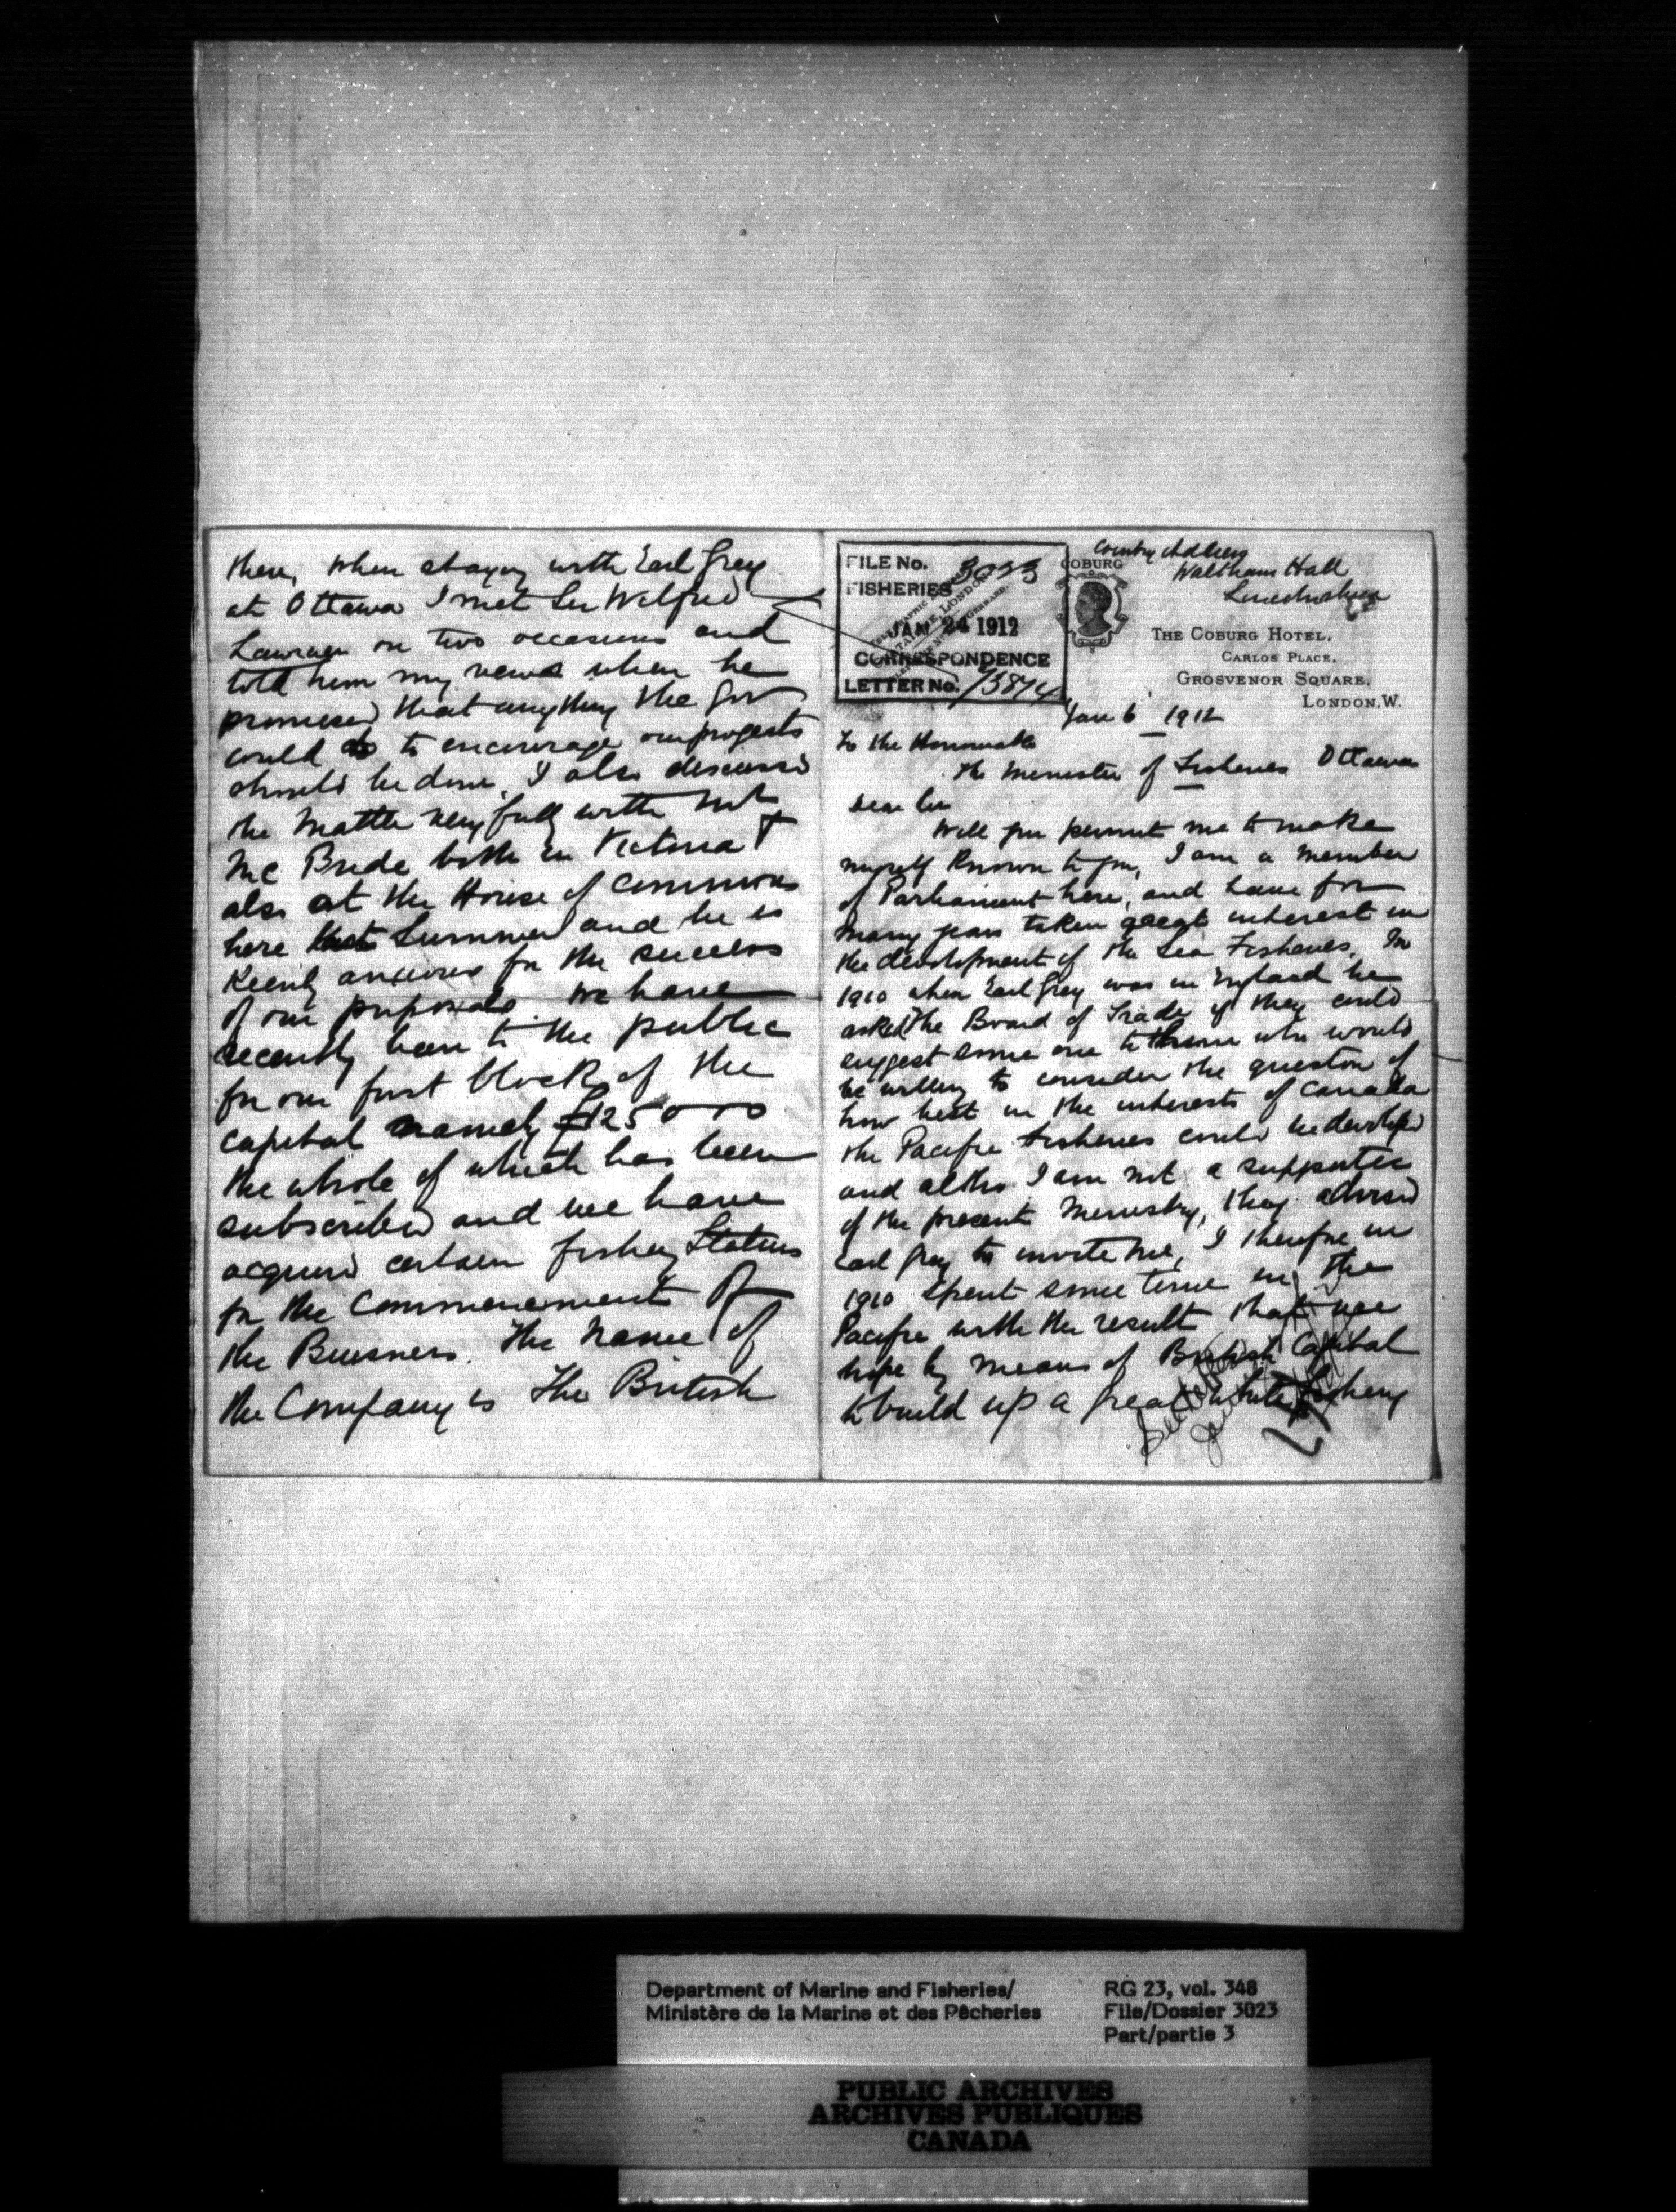 FILE No. 3023
FISHERIES
JAN 24 1912
CORRESPONDENCE
LETTER No. 13874
COBURG
Country Address
Waltham Hall
Lincolnshire
THE COBURG HOTEL,
CARLOS PLACE,
GROSVENOR SQUARE,
LONDON.W.
Jan 6 1912
To the Honourable
The Minister of Fisheries Ottawa
Dear Sir
Will you permit me to make
myself known to you, I am a member
of Parliament here, and have for
many years taken great interest in
the development of the Sea Fisheries. In
1910 when Earl Grey was in England he
asked The Board of Trade if they could
suggest some one to him who would
be willing to consider the question of
how best in the interests of Canada
the Pacific fisheries could be developed
and altho I am not a supporter
of the present Ministry, they advised
Earl Grey to invite me, I therefore in
1910 spent some time in the
Pacific with the result that we
hope by means of British Capital
to build up a great white fishery
there, When staying with Earl Grey
at Ottawa I met Sir Wilfred
Laurier on two occasions and
told him my views when he
promised that anything the Gov
could do to encourage our projects
should be done, I also discussed
the matter very fully with Mr
Mc Bride both in Victoria &
also at the House of Commons
here last Summer and he is
keenly anxious for the success
of our proposals. We have
recently been to the public
for our first block of the
capital namely £125000
the whole of which has been
subscribed and we have
acquired certain fishing Stations
for the Commencement of
the Business. The name of
the Company is The British
Department of Marine and Fisheries/
Ministère de la Marine et des Pêcheries
RG 23, vol. 348
File/Dossier 3023
Part/partie 3
PUBLIC ARCHIVES
ARCHIVES PUBLIQUES
CANADA